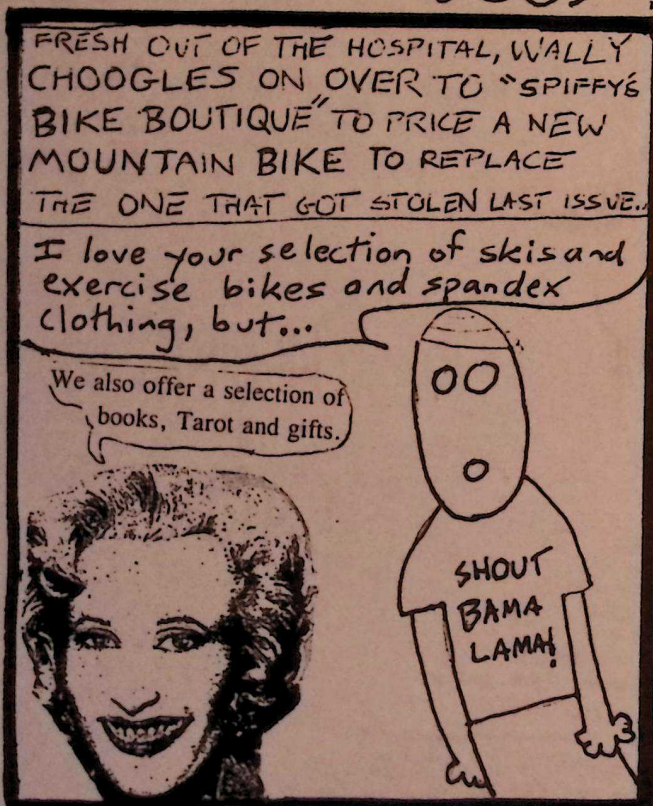 FRESH OUT OF THE HOSPITAL, WALLY
CHOOGLES ON OVER TO "SPIFFY'S
BIKE BOUTIQUE" TO PRICE A NEW
MOUNTAIN BIKE TO REPLACE
THE ONE THAT GOT STOLEN LAST ISSUE..
I love your selection of skis and
exercise bikes and spandex
clothing, but...
We also offer a selection of
books, Tarot and gifts.
SHOUT
BAMA
LAMA!